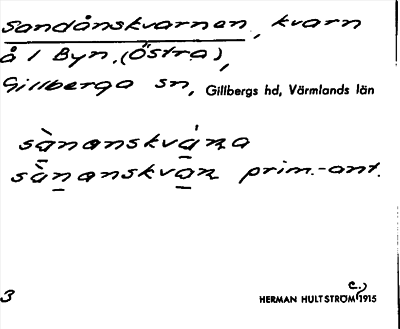 Sandånskvarnen, kvarn
å 1 Byn, (Östra),
Gillberga sn, Gillbergs hd, Värmlands län
sànanskvánа
sànanskvan prim.-ant.
3 HERMAN HULTSTRÖM c. 1915